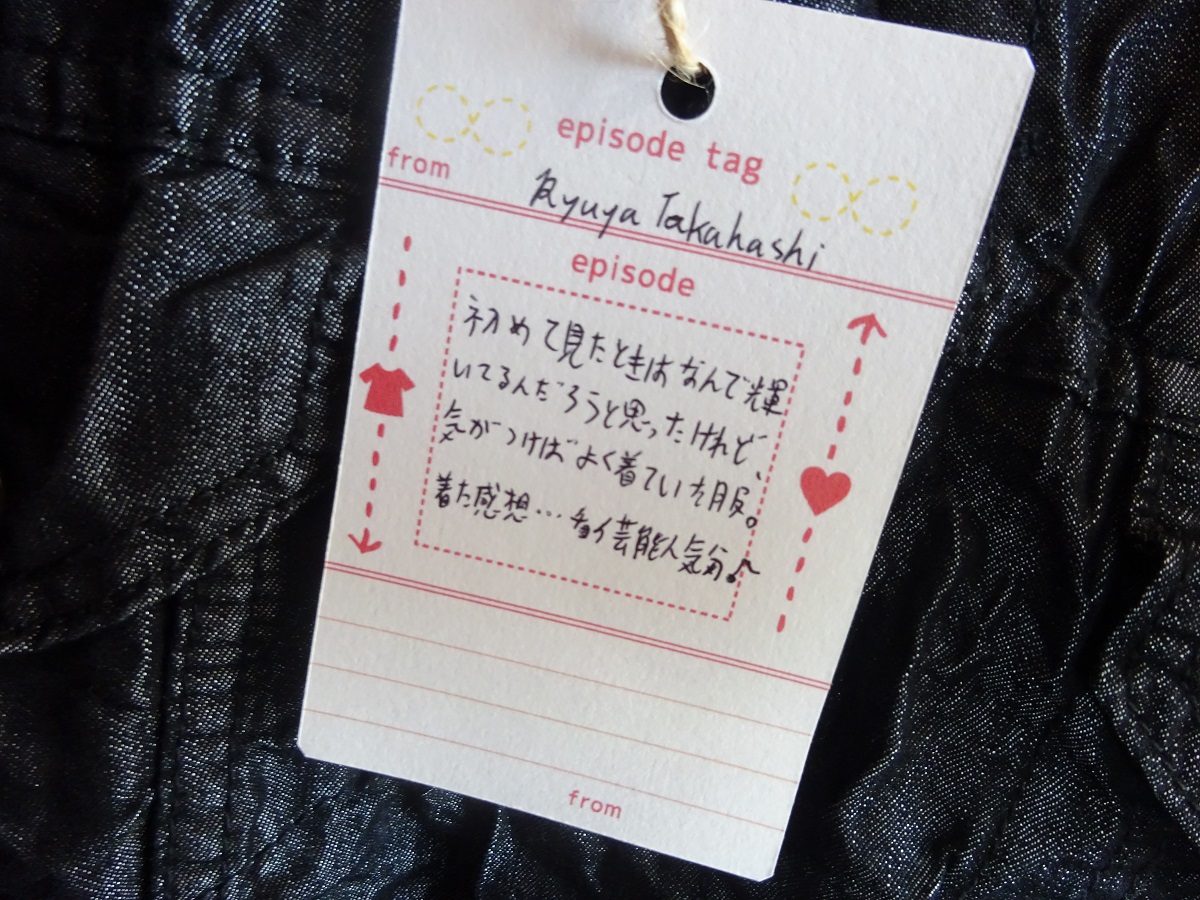 episode tag
from
Ryuya Takahashi
episode
初めて見たときはなんで輝
いてるんだろうと思ったけれど、
気がつけばよく着ていた服。
着た感想…チョイ芸能人気分♪
from